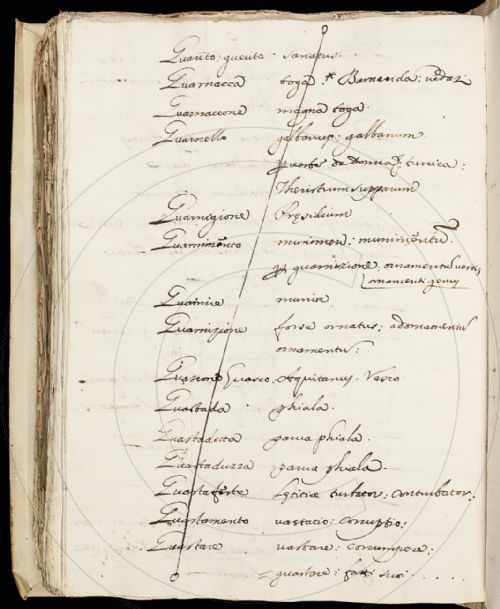 Guarito: guerito. sanatus.
Guarnacca toga Bernarda: vedaz
Guarnaccone magna toga.
Guarnello galbanum.
veste da Donna. tunica:
Theristrum supparum
Guarnigione Presidium
Guarnimento munimen: munimentu
guarnizione, ornamentu vestis
Guarnire munire
Guarnizione forse ornatus: adornamentu
ornamentu:
Guascone Guasco: Aquitanus. Vasco.
Guastada phiala.
Guastadetta parua phiala.
Guastaduzza parua phiala.
Guastafeste turbator: conturbator:
Guastamento vastatio: corruptio:
Guastare vastare: corrumpere:
= guastare: suoi.....